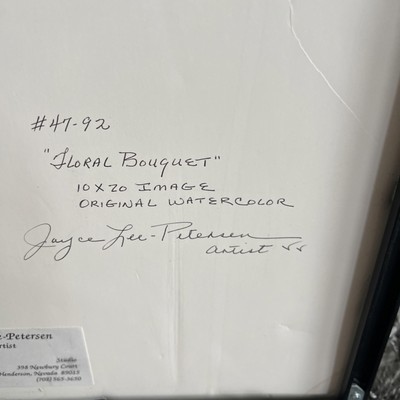 #47-92
"Floral Bouquet"
10 x 20 Image
Original Watercolor
Joyce Lee-Petersen
Artist
-Petersen
Artist
Studio
398 Newbury Court
Henderson, Nevada 89015
(702) 565-3650